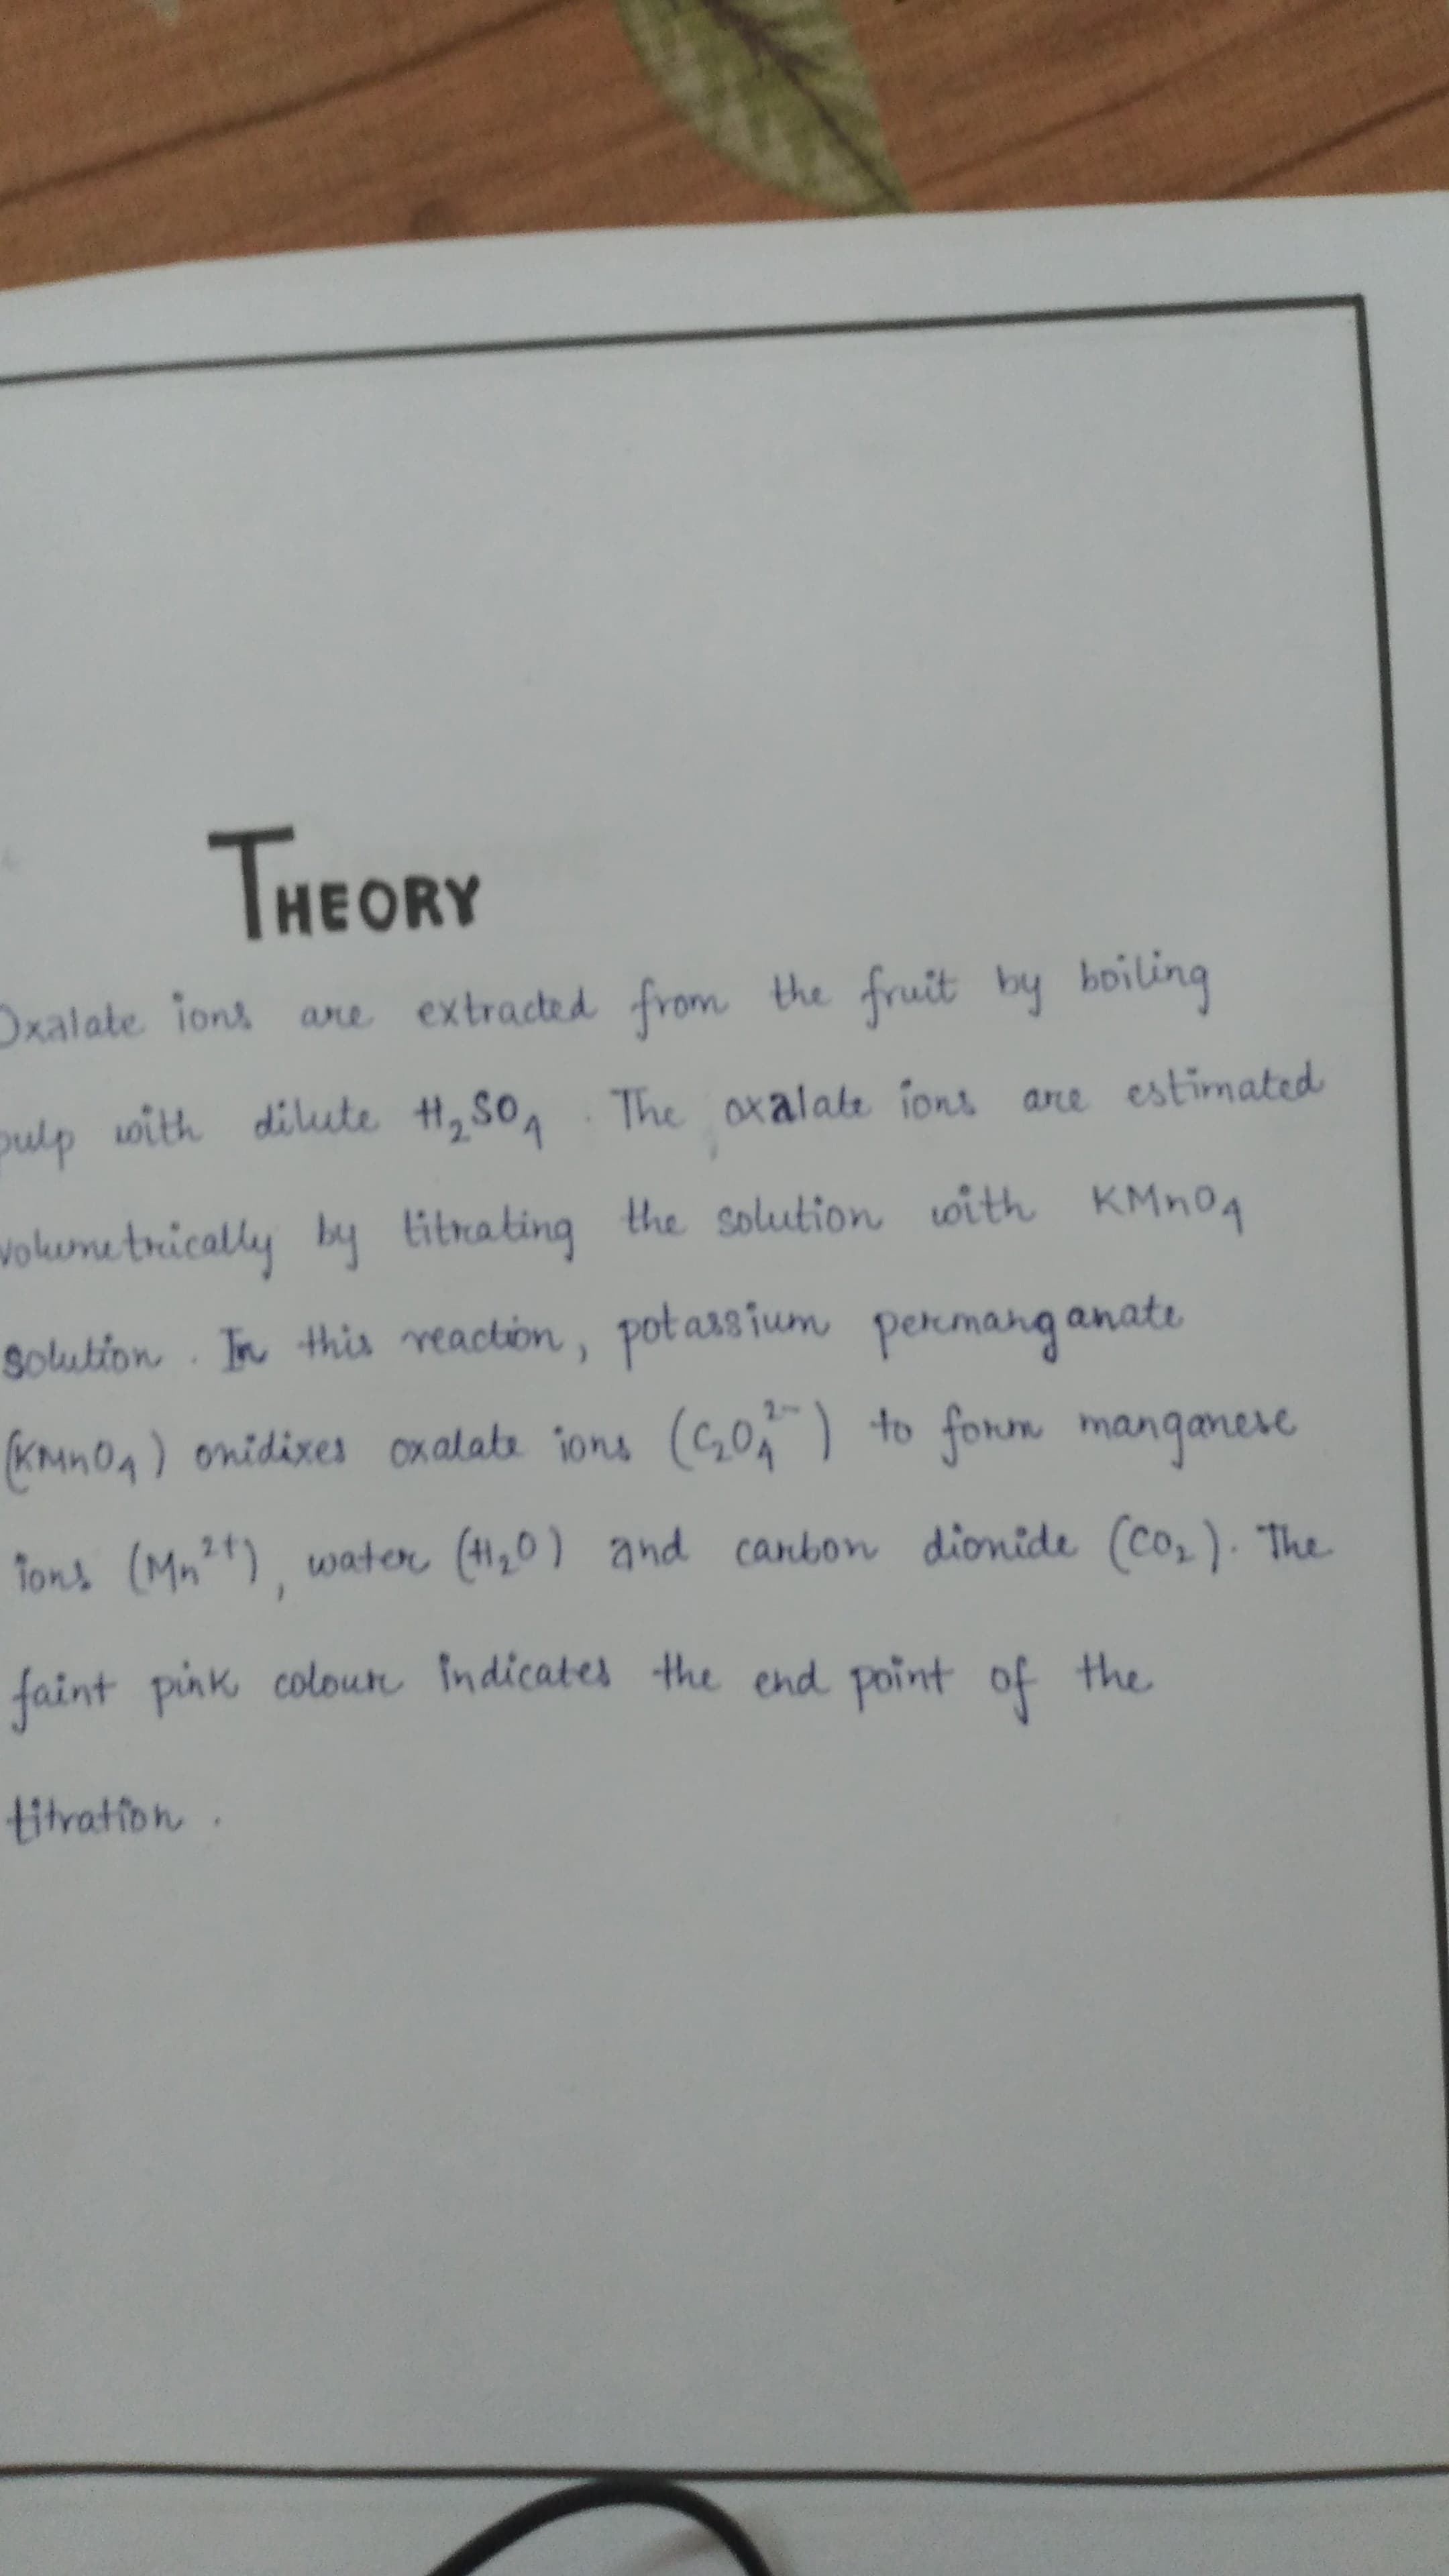 THEORY
Oxalate ions are extracted from the fruit by boiling
pulp with dilute H₂SO₄. The oxalate ions are estimated
volumetrically by titrating the solution with KMnO₄
solution. In this reaction, potassium permanganate
(KMnO₄) onidixes oxalate ions (C₂O₄²⁻) to form manganese
ions (Mn²⁺), water (H₂O) and carbon dionide (CO₂). The
faint pink colour indicates the end point of the
titration.